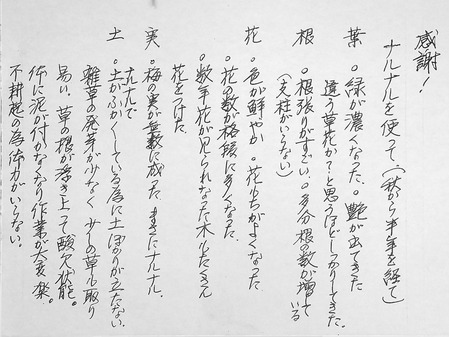 感謝!
ナルナルを使って、(秋から半年を経て)
葉 。緑が濃くなった。艶が出てきた
違う草花か?と思うほどしっかりしてきた。
根 。根張りがすごい。。多分根の数が増している
(支柱がいらない)
花 。色が鮮やか 。花もちがよくなった
。花の数が格段に多くなった
。数年花が見られなかった木もたくさん
花をつけた
実 。梅の実が無数に成った まさにナルナル。
ナルナルで
土 。土がふかふかしている為に土ぼこりが立たない。
雑草の発芽が少なく 少しの草も取り
易い。草の根が浮き上って酸欠状態。
体に泥が付かなくなり作業が大変楽。
不耕起の為体力がいらない。